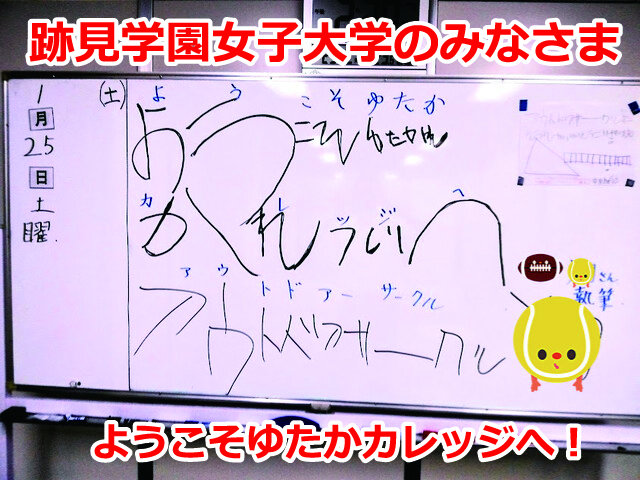 跡見学園女子大学のみなさま
1
月
25
日
土
曜
(土)
ようこそゆたか
ようこそゆたか
カレッジへ
かれっじへ
アウトドアーサークル
アウトドアサークル
さん
執筆
ようこそゆたかカレッジへ！